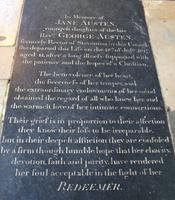 In Memory of
JANE AUSTEN,
youngest daughter of the late
Revd GEORGE AUSTEN,
formerly Rector of Steventon in this County
she departed this Life on the 18th of July 1817,
aged 41, after a long illness supported with
the patience and the hopes of a Christian.
The benevolence of her heart,
the sweetness of her temper, and
the extraordinary endowments of her mind
obtained the regard of all who knew her, and
the warmest love of her intimate connections.
Their grief is in proportion to their affection
they know their loss to be irreparable,
but in their deepest affliction they are consoled
by a firm though humble hope that her charity,
devotion, faith and purity, have rendered
her soul acceptable in the sight of her
REDEEMER.